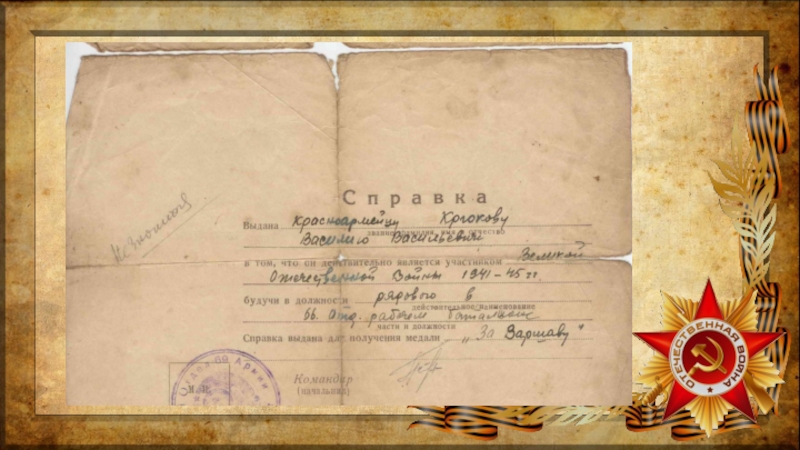 Справка
Выдана красноармейцу Крюкову
звание, фамилия, имя и отчество
Василию Васильевич
в том, что он действительно является участником Великой
Отечественной Войны 1941-45 гг.
будучи в должности рядового в
действительное наименование
66. отд. рабочем батальоне
части и должности
Справка выдана для получения медали „За Варшаву"
Командир
(начальник)
ОТЕЧЕСТВЕННАЯ ВОЙНА